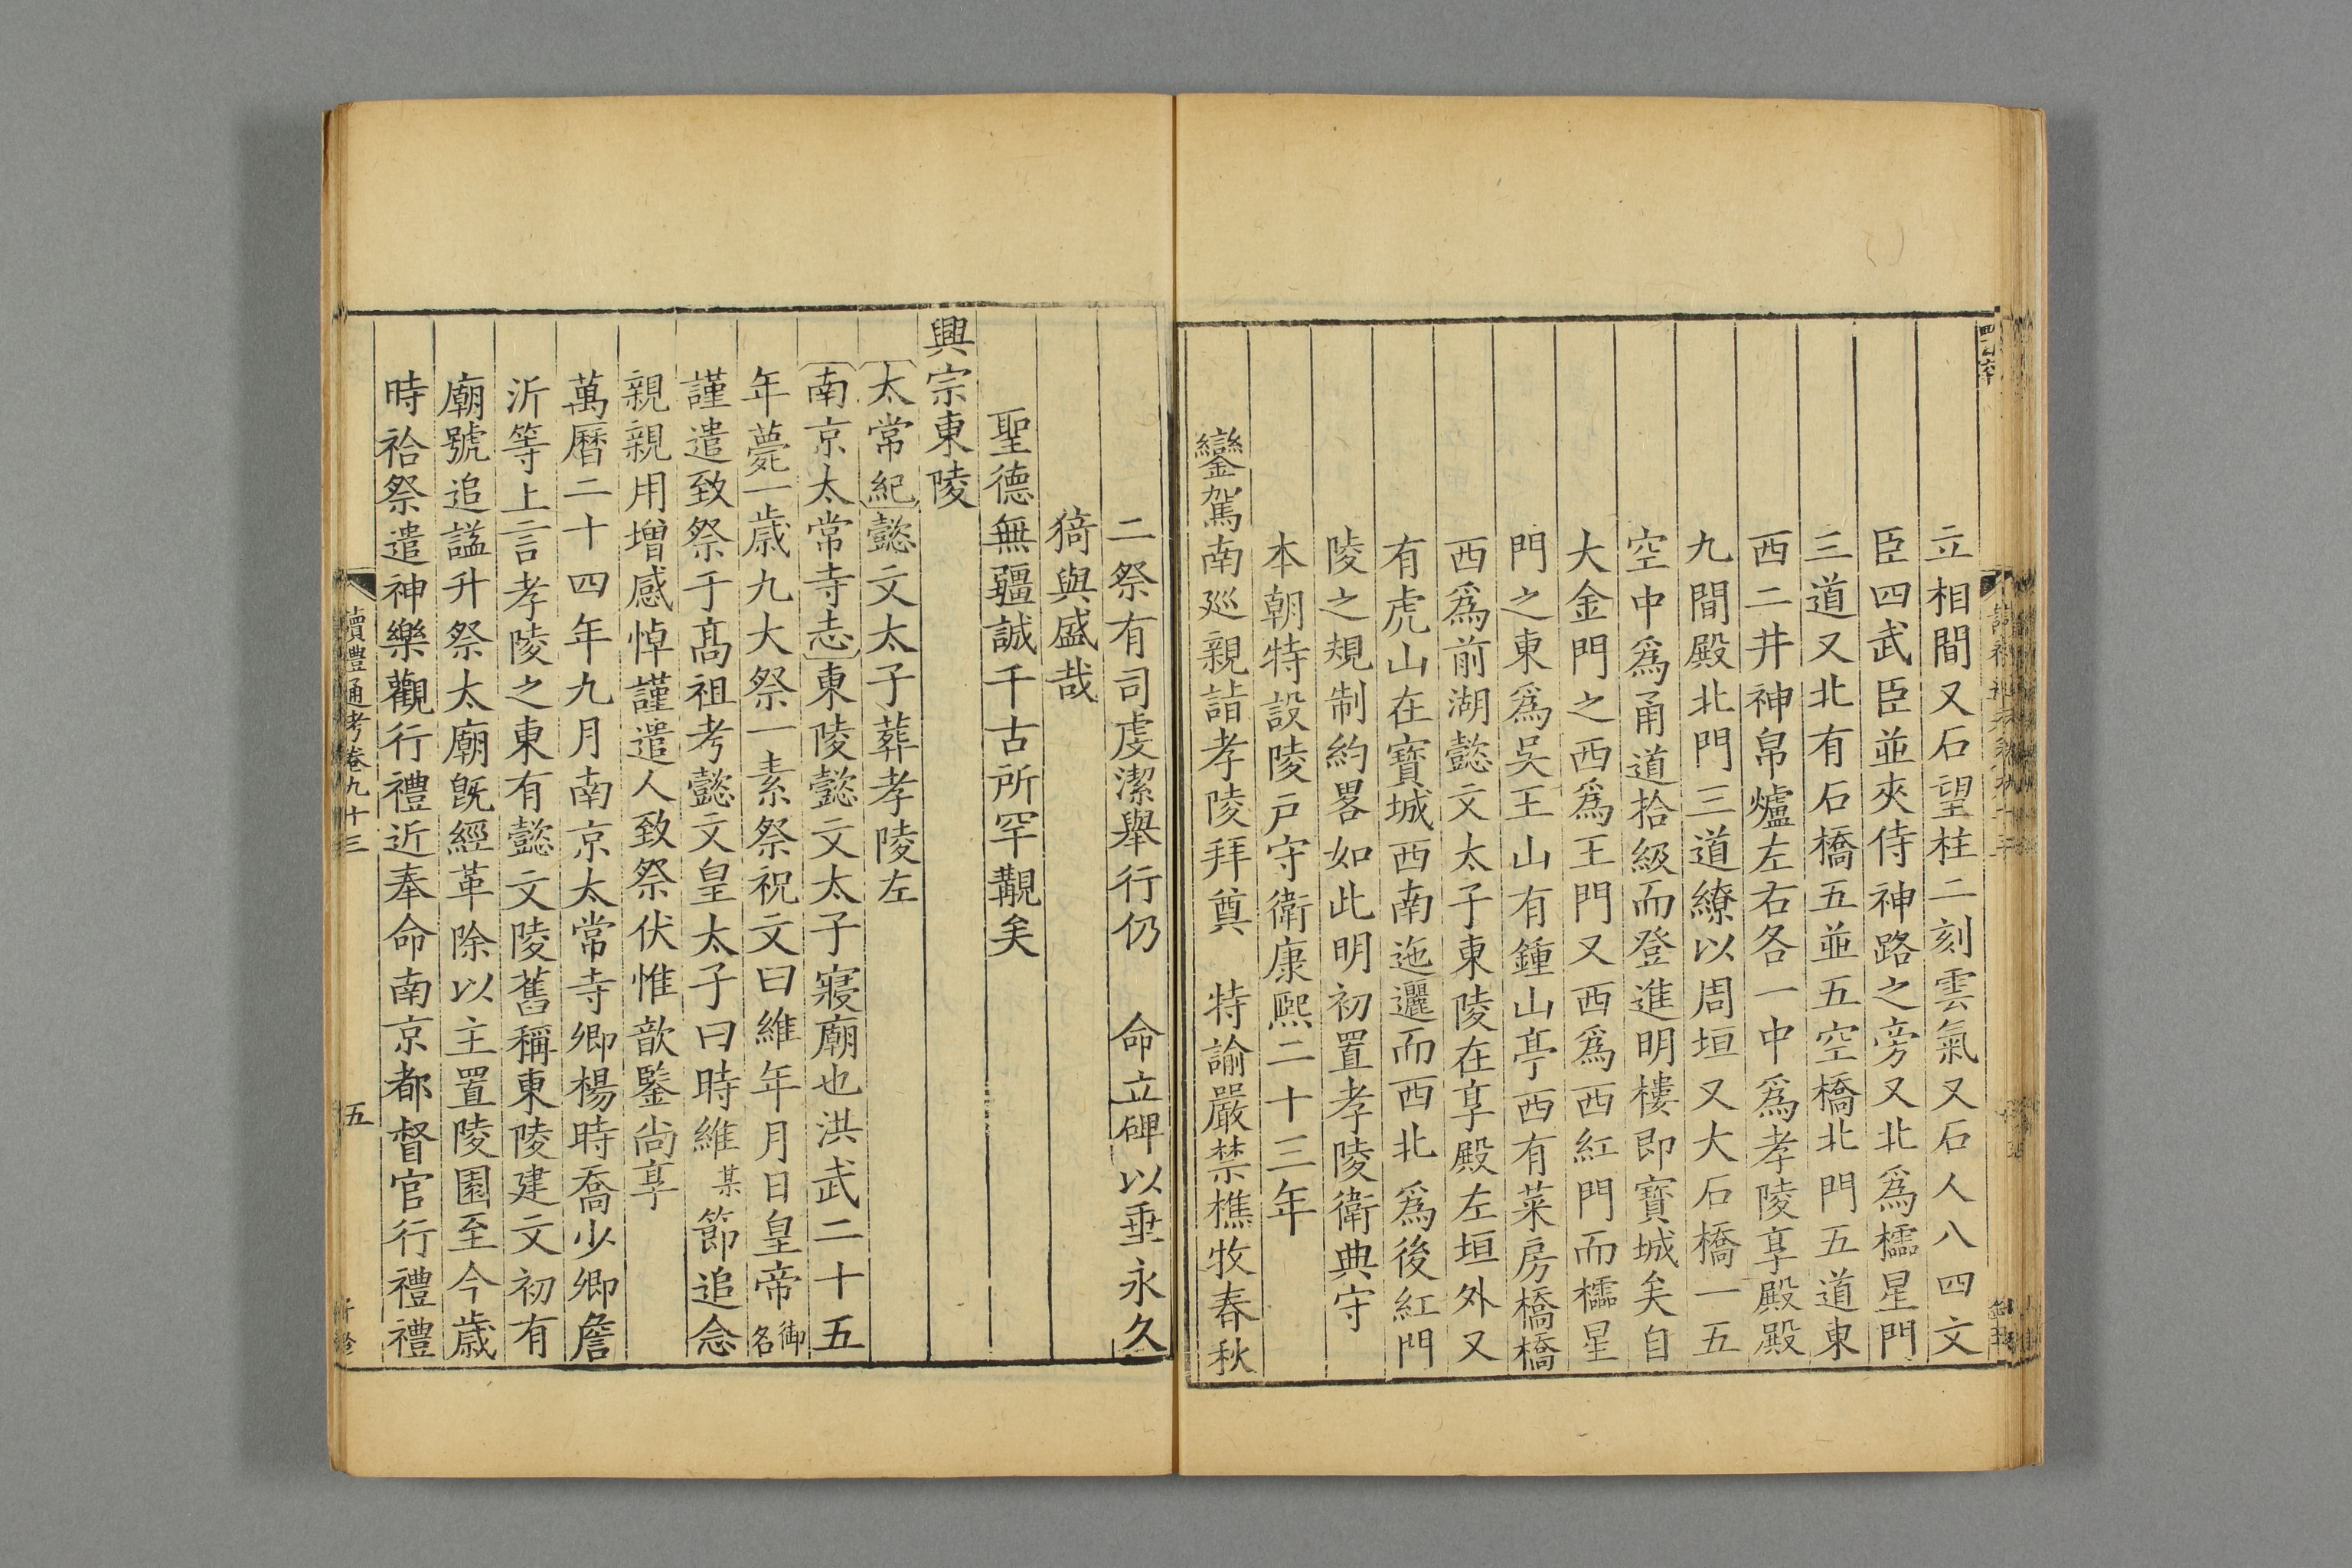 立相間又石望柱二刻雲氣又石人八四文
臣四武臣並夾侍神路之旁又北爲櫺星門
三道又北有石橋五並五空橋北門五道東
西二井神帛爐左右各一中爲孝陵享殿殿
九間殿北門三道繚以周垣又大石橋一五
空中爲甬道拾級而登進明樓即寶城矣自
大金門之西爲王門又西爲西紅門而櫺星
門之東爲吳王山有鍾山亭西有菜房橋橋
西爲前湖懿文太子東陵在享殿左垣外又
有虎山在寶城西南迤邐而西北爲後紅門
陵之規制約畧如此明初置孝陵衛典守
本朝特設陵戶守衛康熙二十三年
鑾駕南廵親詣孝陵拜奠　特諭嚴禁樵牧春秋
二祭有司虔潔舉行仍　命立碑以垂永久
猗與盛哉
聖德無疆誠千古所罕覯矣
興宗東陵
〔太常紀〕懿文太子葬孝陵左
〔南京太常寺志〕東陵懿文太子寢廟也洪武二十五
年薨一歲九大祭一素祭祝文曰維年月日皇帝御名
謹遣致祭于髙祖考懿文皇太子曰時維某節追念
親親用增感悼謹遣人致祭伏惟歆鑒尚享
萬曆二十四年九月南京太常寺卿楊時喬少卿詹
沂等上言孝陵之東有懿文陵舊稱東陵建文初有
廟號追謚升祭太廟旣經革除以主置陵園至今歲
時祫祭遣神樂觀行禮近奉命南京都督官行禮禮
讀禮通考卷九十三
五